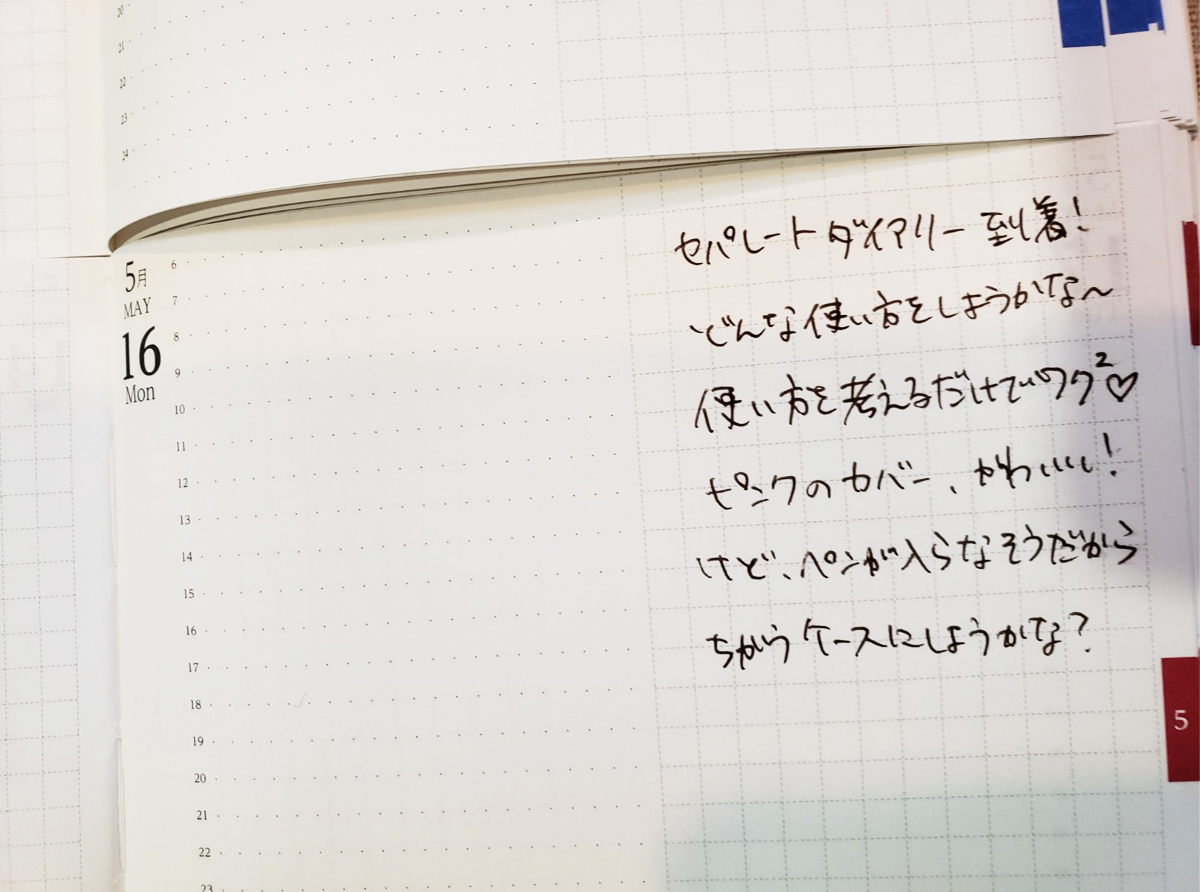 20
21
22
23
24
5月
MAY
16
Mon
6
7
8
9
10
11
12
13
14
15
16
17
18
19
20
21
22
23
セパレートダイアリー到着!
どんな使い方をしようかな～
使い方を考えるだけでワク²♡
ピンクのカバー、かわいい!
けど、ペンが入らなそうだから
ちがうケースにしようかな?
5